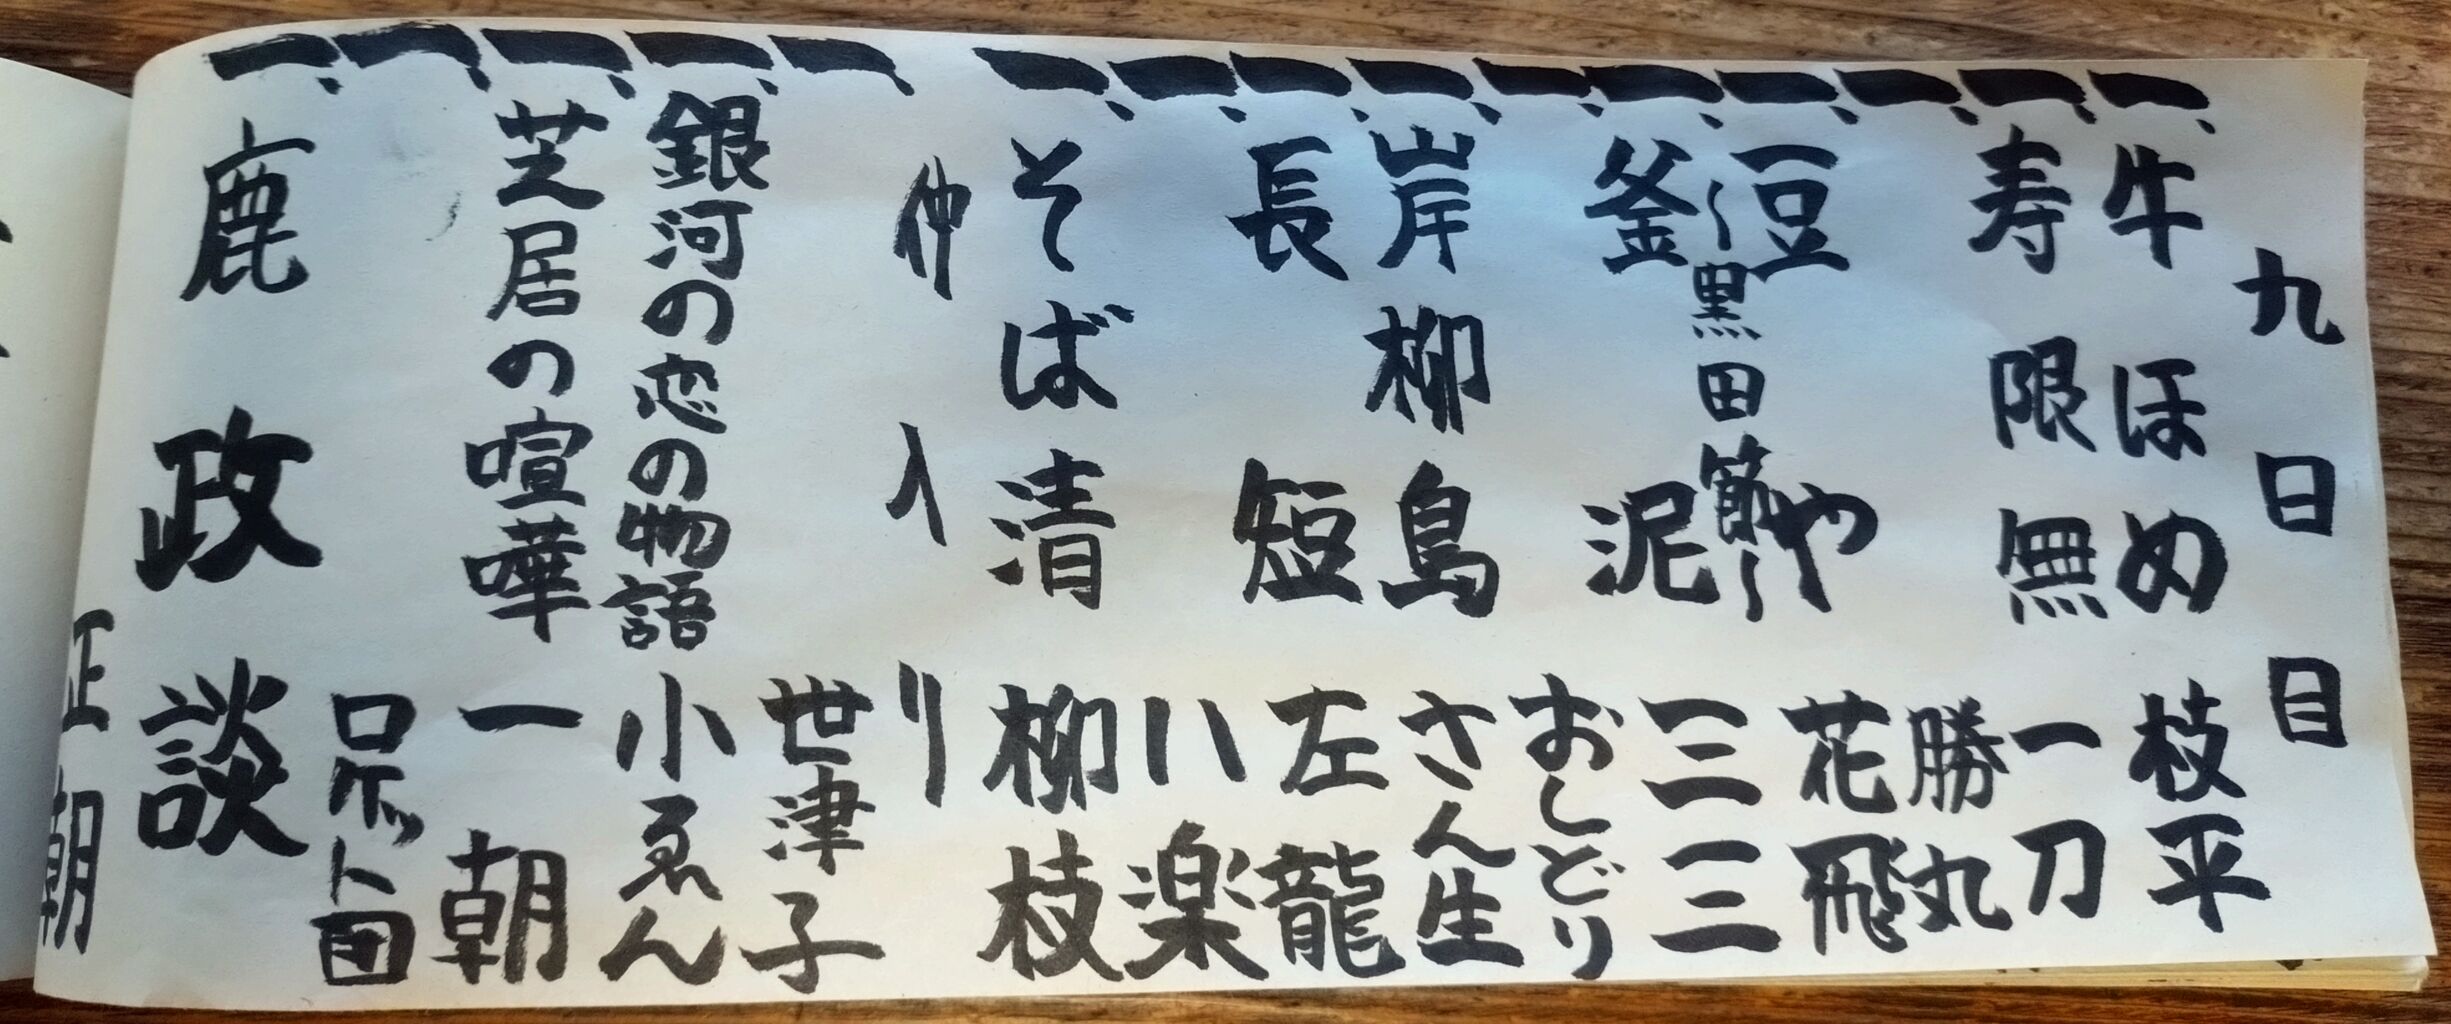 九日目
一、牛ほめ 枝平
一、寿限無 一刀
一、勝丸
一、豆や 花飛
〜黒田節〜
一、釜泥 三三
一、おしどり
一、岸柳島 さん生
一、長短 左龍
一、八楽
一、そば清 柳枝
仲入り
一、世津子
一、銀河の恋の物語 小ゑん
一、芝居の喧嘩 一朝
一、ロケット団
一、鹿政談
正朝